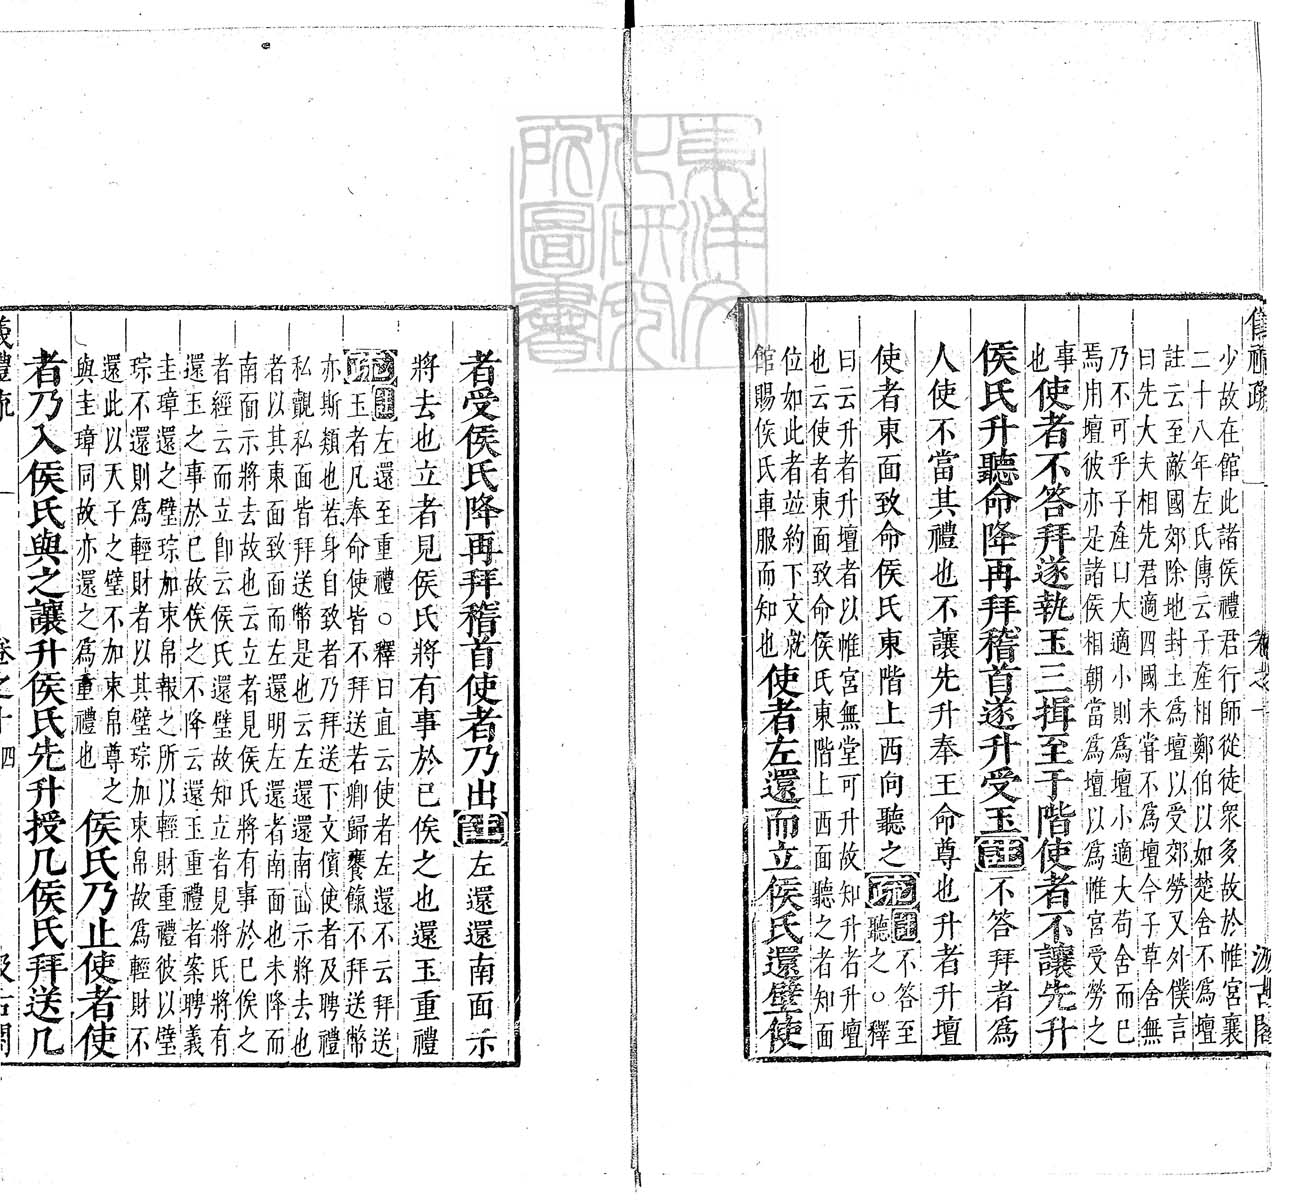 儀禮疏 卷之十 汲古閣
少故在館此諸侯禮君行師從徒衆多故於帷宮襄
二十八年左氏傳云子產相鄭伯以如楚舍不爲壇
註云至敵國郊除地封土爲壇以受郊勞又外僕言
曰先大夫相先君適四國未嘗不爲壇今子草舍無
乃不可乎子產曰大適小則爲壇小適大苟舍而已
焉用壇彼亦是諸侯相朝當爲壇以爲帷宮受勞之
事
也使者不答拜遂執玉三揖至于階使者不讓先升
侯氏升聽命降再拜稽首遂升受玉註不答拜者爲
人使不當其禮也不讓先升奉王命尊也升者升壇
使者東面致命侯氏東階上西向聽之疏註不答至
聽之○釋
曰云升者升壇者以帷宮無堂可升故知升者升壇
也云使者東面致命侯氏東階上西面聽之者知面
位如此者竝約下文就
館賜侯氏車服而知也使者左還而立侯氏還璧使
者受侯氏降再拜稽首使者乃出註左還還南面示
將去也立者見侯氏將有事於已俟之也還玉重禮
疏註左還至重禮○釋曰直云使者左還不云拜送
玉者凡奉命使皆不拜送若卿歸饔餼不拜送幣
亦斯類也若身自致者乃拜送下文儐使者及聘禮
私覿私面皆拜送幣是也云左還還南面示將去也
者以其東面致面而左還明左還者南面也未降而
南面示將去故也云立者見侯氏將有事於已俟之
者經云而立卽云侯氏還璧故知立者見將氏將有
還玉之事於已故俟之不降云還玉重禮者案聘義
圭璋還之璧琮加束帛報之所以輕財重禮彼以璧
琮不還則爲輕財者以其璧琮加束帛故爲輕財不
還此以天子之璧不加束帛尊之
與圭璋同故亦還之爲重禮也侯氏乃止使者使
者乃入侯氏與之讓升侯氏先升授几侯氏拜送几
儀禮疏 卷之十四 汲古閣
東洋文化研究所圖書